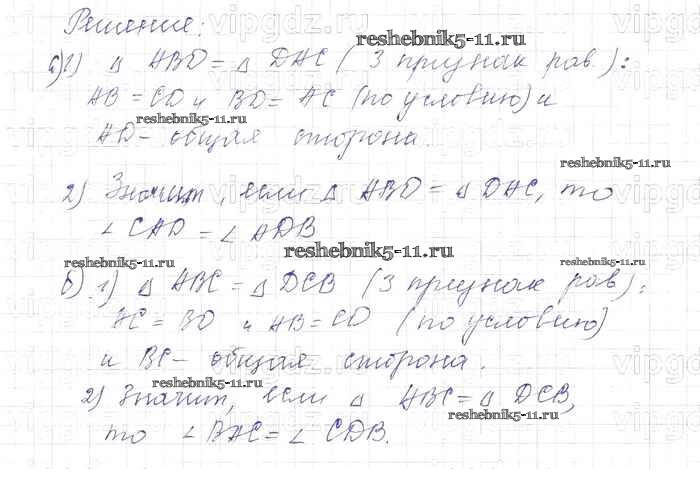 Решение:
а) 1) △ ABD = △ DAC (3 признак рав.):
AB = CD и BD = AC (по условию) и
AD - общая сторона.
2) Значит, если △ ABD = △ DAC, то
∠ CAD = ∠ ADB
б) 1) △ ABC = △ DCB (3 признак рав):
AC = BD и AB = CD (по условию)
и BC - общая сторона.
2) Значит, если △ ABC = △ DCB,
то ∠ BAC = ∠ CDB.
reshebnik5-11.ru
reshebnik5-11.ru
reshebnik5-11.ru
reshebnik5-11.ru
reshebnik5-11.ru
reshebnik5-11.ru
reshebnik5-11.ru
reshebnik5-11.ru
vipgdz.ru